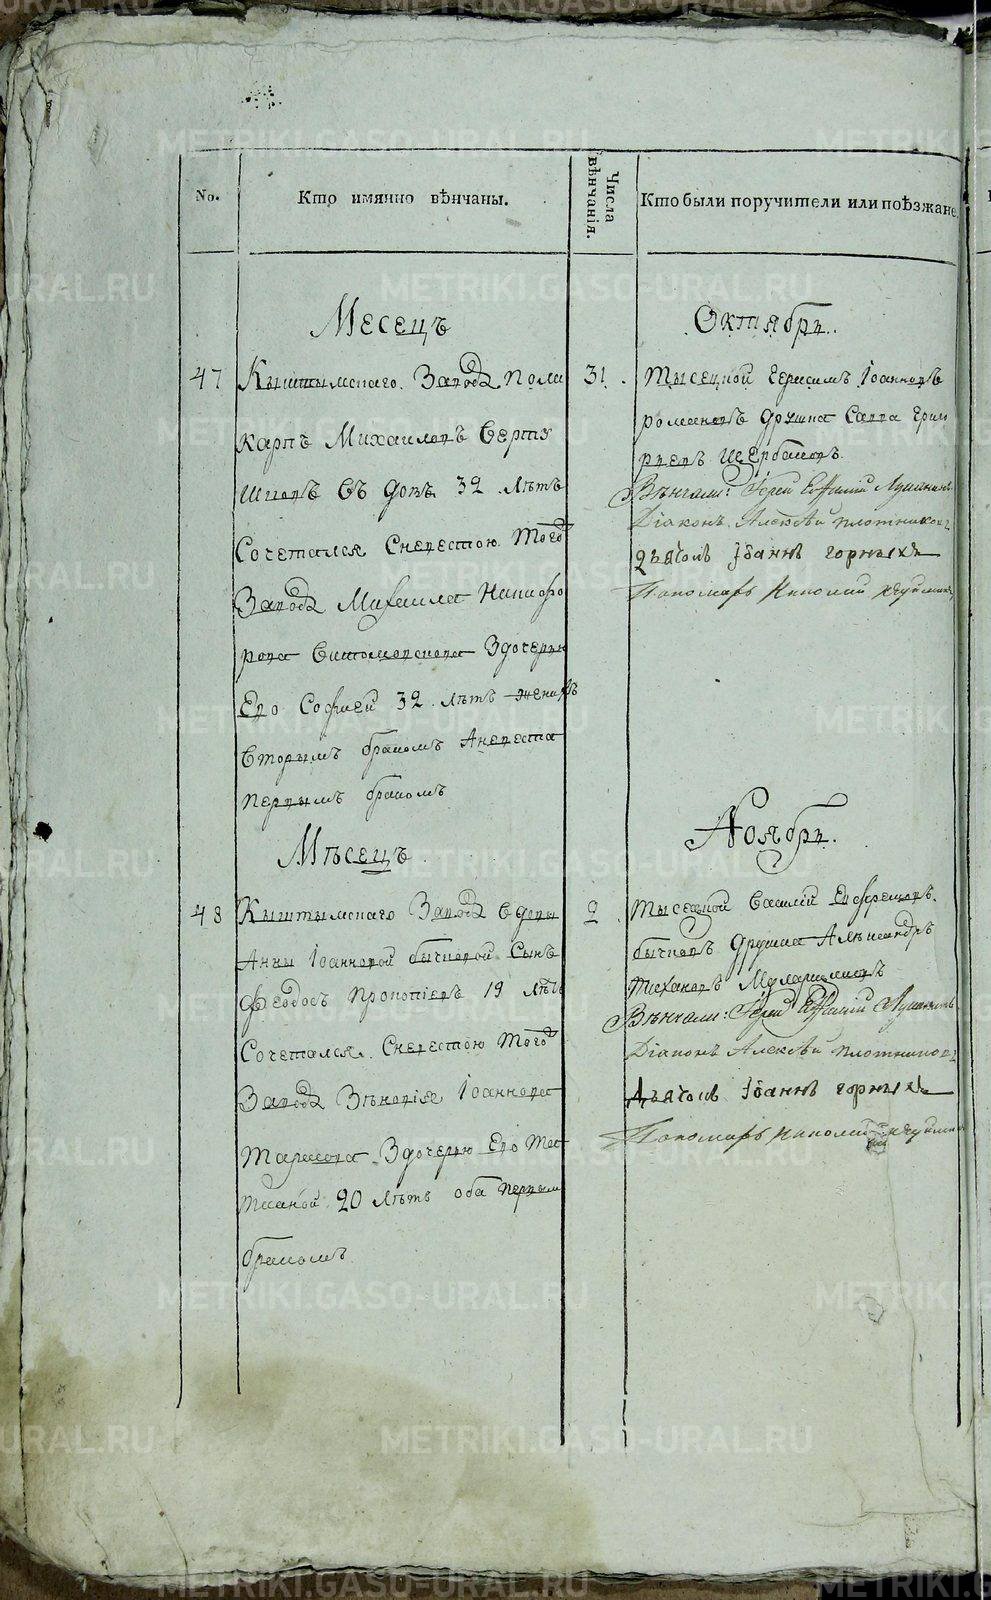 No.
Кто имянно вѣнчаны.
Числа вѣнчанія.
Кто были поручители или поѣзжане
Месецъ
Октябрь.
47
Кыштымскаго Завода Поли
карпъ Михаиловъ Верту
шковъ въ довъ 32 лѣтъ
Сочетался Сневестою того
Завода Михаила Никифо
рова Здочерью
Его Софией 32 лѣтъ жени
Вторымъ бракомъ Аневеста
первымъ бракомъ
31.
Тысецкой Герасимъ Іоанновъ
романовъ дружка Савва Григ
рьевъ Щербаковъ.
Вѣнчали: Іерей Евфимій
Діаконъ Алексѣй плотников
дьячокъ Іоаннъ горныхъ
Пономарь Николай
Мѣсецъ
Ноябрь.
48
Кыштымскаго Завода вдовы
Анны Іоанновой бычковой Сынъ
Феодосъ Прокопіевъ 19 лѣтъ
Сочетался Сневестою того
Завода Іоаннова
Тарасова Здочерью Его Та
тианой 20 лѣтъ оба первым
бракомъ
2
Тысецкой Василій Евфремовъ
бычковъ Дружка Алѣксандръ
Тихановъ
Вѣнчали: Іерей Евфимій
Діаконъ Алексѣй плотников
Дьячокъ Іоаннъ горныхъ
Пономарь Николай
METRIKI.GASO-URAL.RU